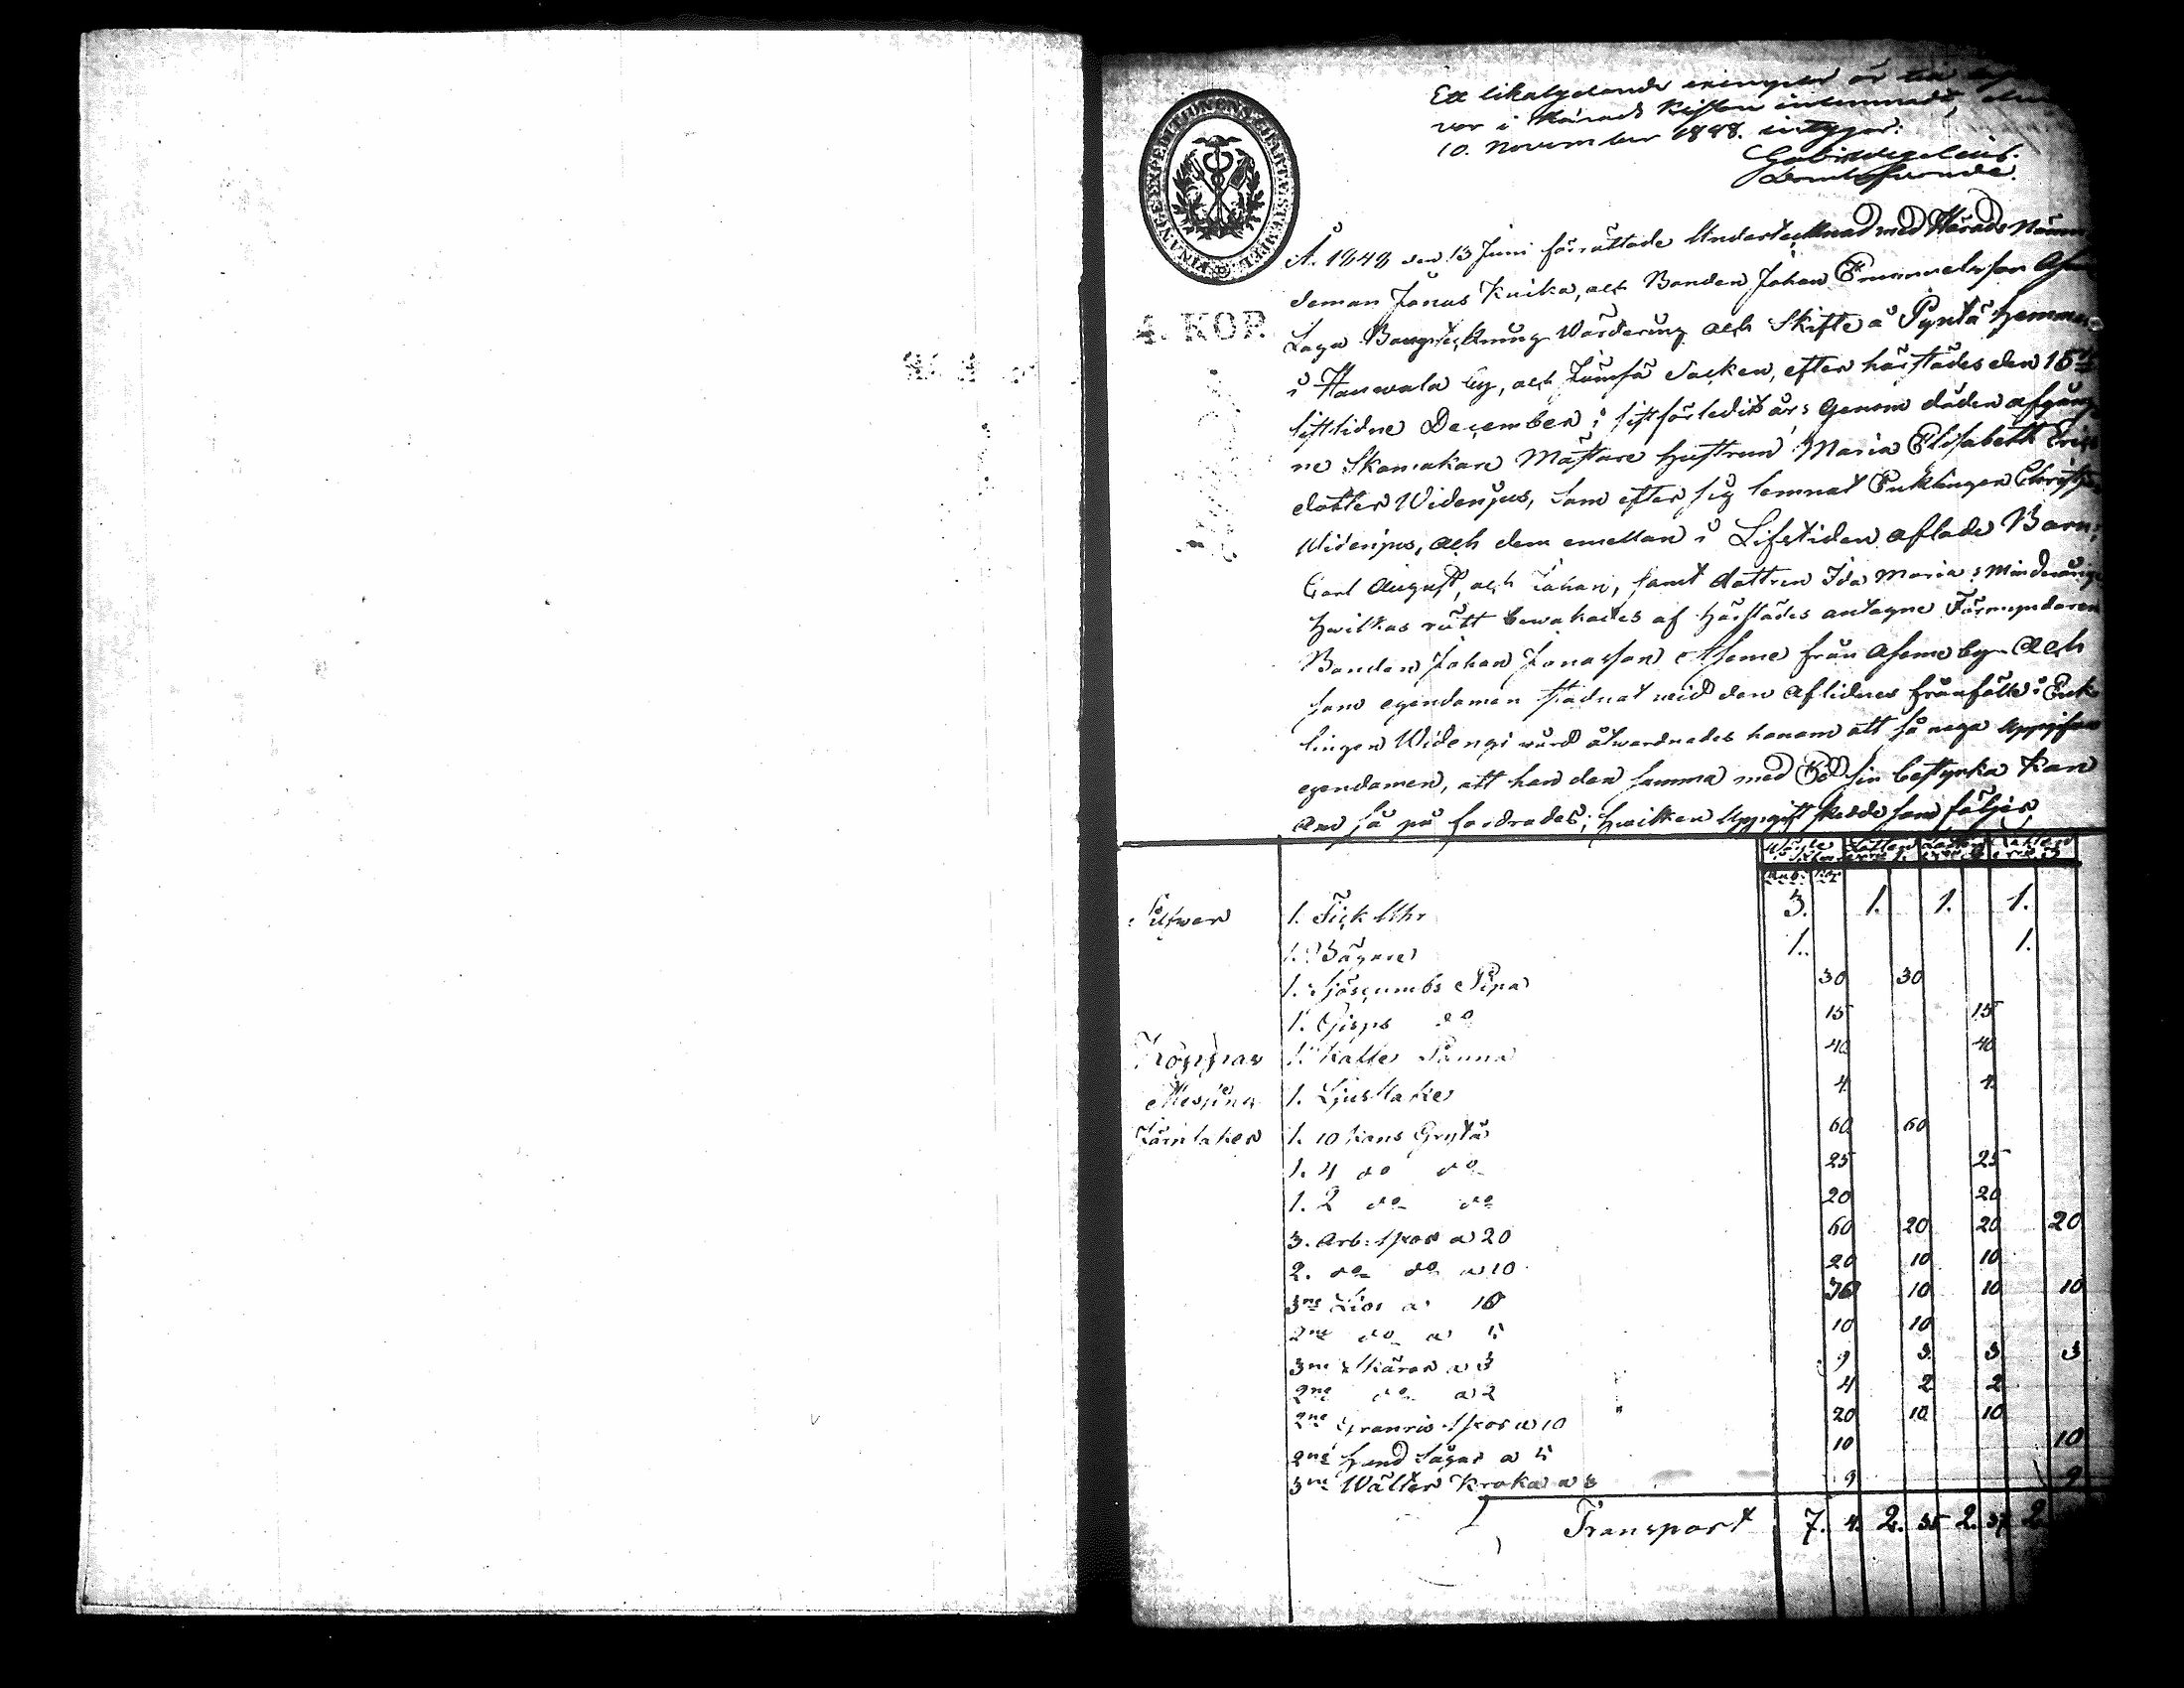 Ett likalydande exemplar är
var i Härads Kistan inlemnadt,
10. November 1848. intygar:
FINANCE EXPEDITIONENS CHARTÆ STEMPEL
4. KOP.
År 1848 den 13 Juni förrättade Undertecknad med Härads Nämn
deman Jonas Knika, och Bonden Johan Emmanuelsson
Laga Bouptekning Wärdering och Skifte å Pyntä hemman
i Hanwala by, och Jämsä Socken, efter härstädes den 15de
sistlidne December i sistförledit år; Genom döden afgång
ne Skomakare Mästare hustrun Maria Elisabeth Erics
dotter Widenjus, som efter sig lemnat Enklingen Christ
Widenjus, och dem emellan i Lifstiden aflade Barn;
Carl August, och Johan, samt dottren Ida Maria; Minderårige
hwilkas rätt bewakades af härstädes antagne Förmyndaren
Bonden Johan Jonasson Aseme från Aseme by och
som egendomen stadnat wid den Aflidnes frånfälle i Enk
lingen Widenji wård åtwarnades honom att så noga uppgifwa
egendomen, att han den samma med Ed sin bestyrka kan
om så på fordrades; hwilken Uppgift skedde som följer,
Rub. Kop.
Silfwer 1. Fick Uhr 3. 1. 1. 1.
1. Bägare 1. 1.
1. Sjöscumbs Pipa 30 30
1. Gisps do 15 15
Koppar 1. Kaffe Panna 40 40
Messing 1. Ljusstake 4 4
Järnsaker 1. 10 kans Gryta 60 60
1. 4 do do 25 25
1. 2 do do 20 20
3. Arb: spor a 20 60 20 20 20
2. do do a 10 20 10 10
3ne Liar a 10 30 10 10 10
2ne do a 5 10 10
3ne Skäror a 3 9 3 3 3
2ne do a 2 4 2 2
2ne Granris spor a 10 20 10 10
2ne hand sågar a 5 10 10
3ne Wälter Kroka a 3 9 9
Transport 7. 4. 2. 35 2. 37 2.